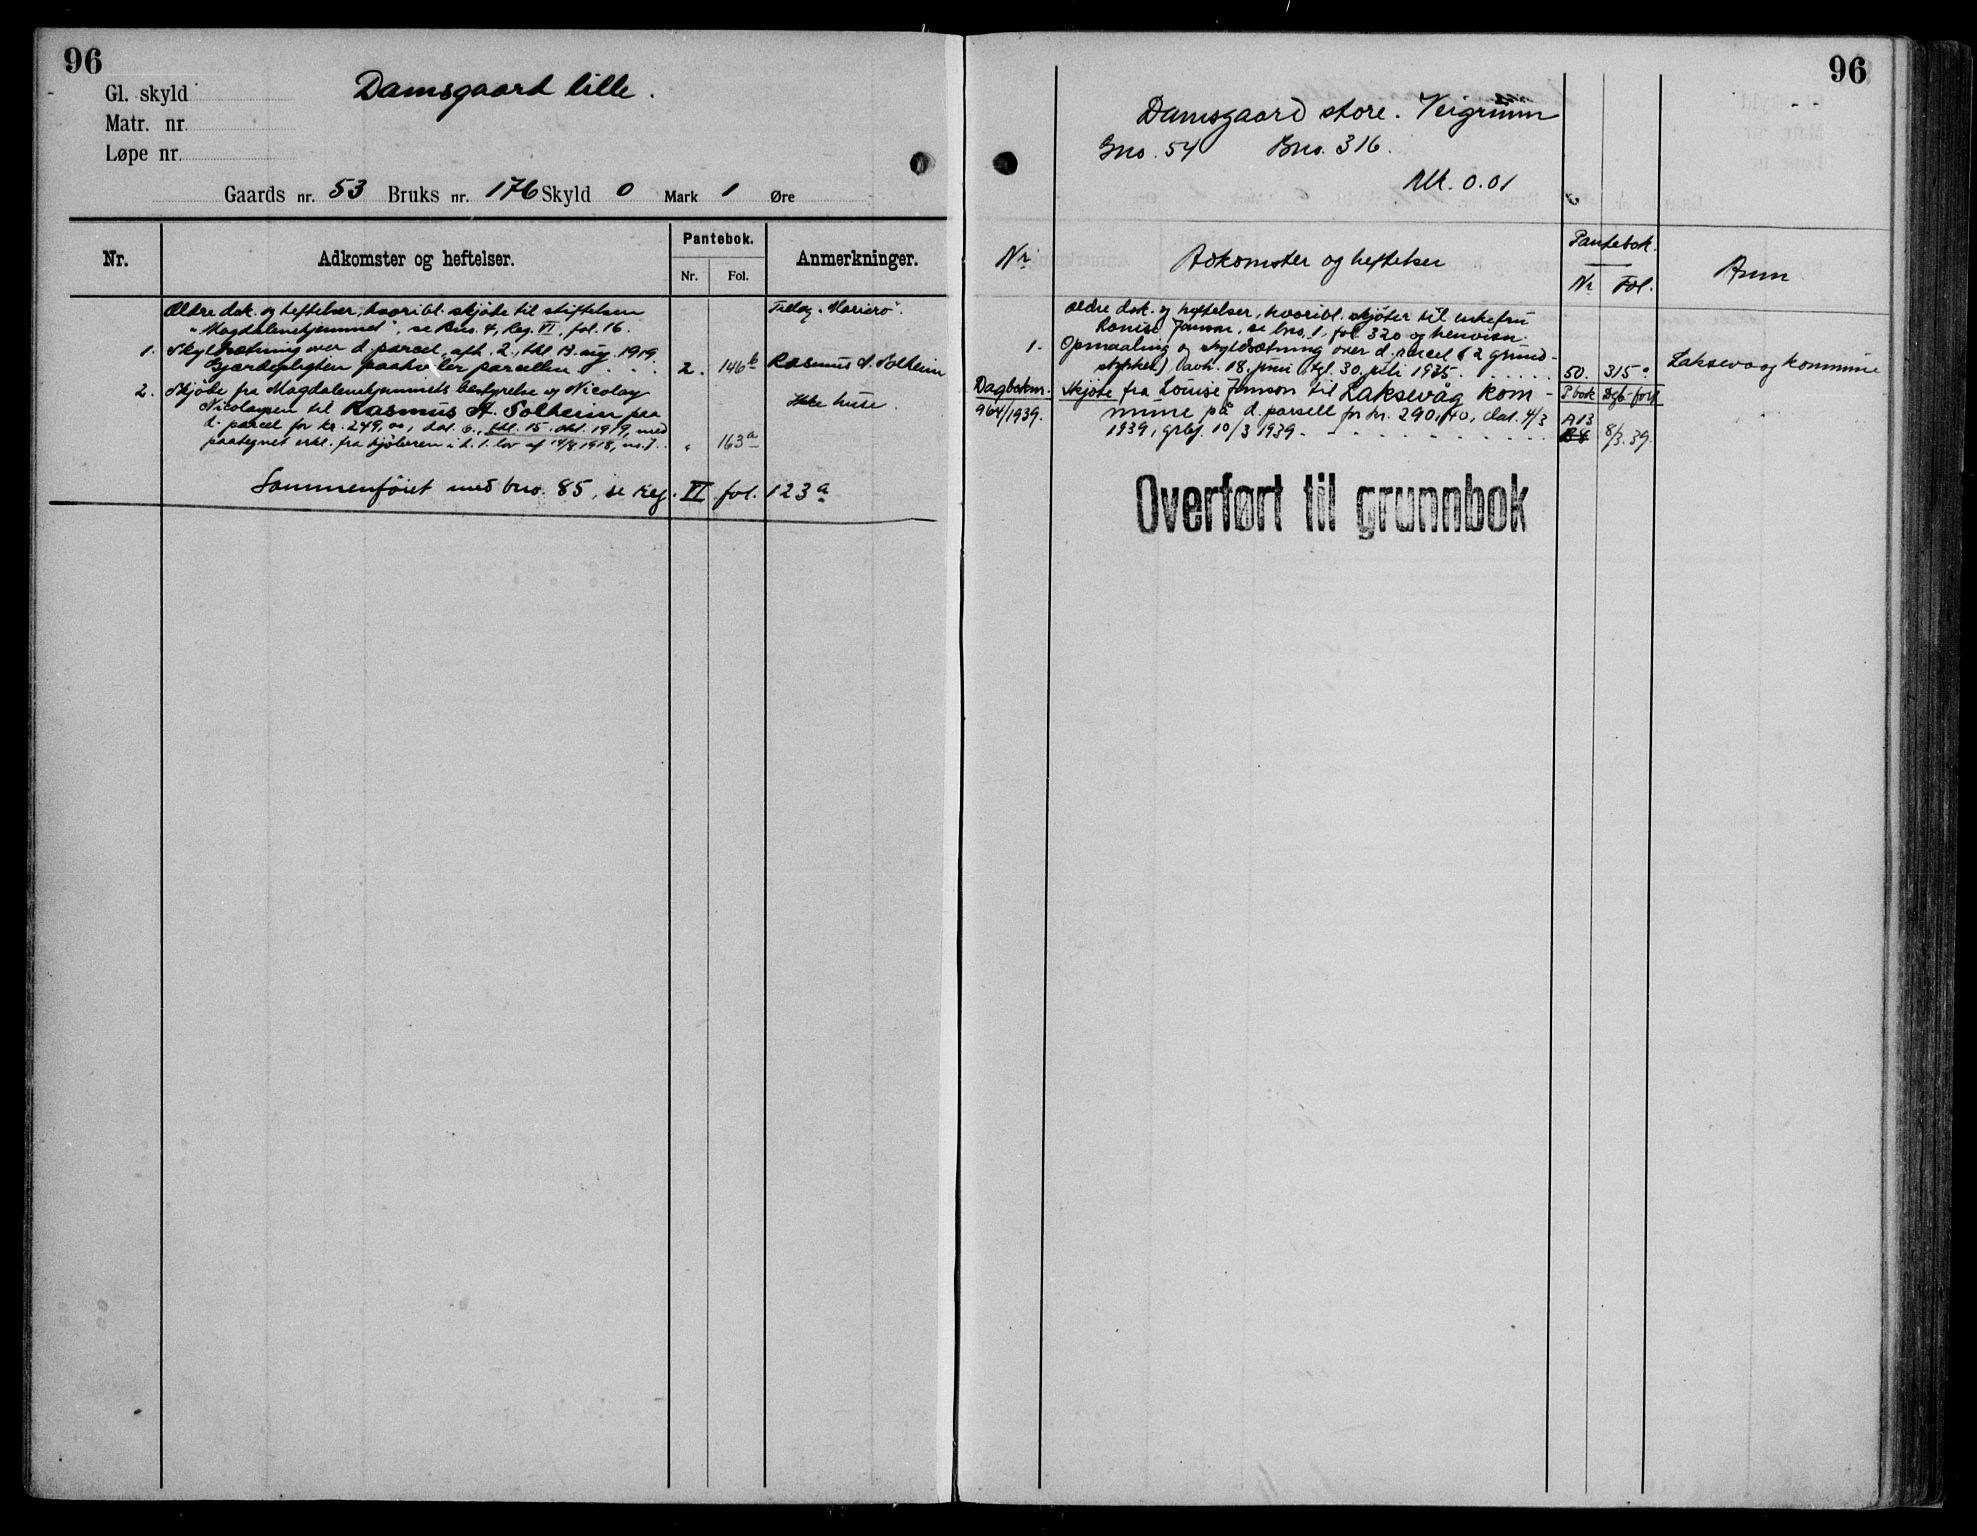 96
Gl. skyld
Damsgaard lille.
Matr. nr.
Løpe nr.
Gaards nr. 53 Bruks nr. 176 Skyld 0 Mark 1 Øre
Nr. Adkomster og heftelser. Pantebok. Anmerkninger.
Nr. Fol.
Ældre dok. og heftelser, hvoribl. skjøte til stiftelsen
"Magdalenehjemmet", se Bno. 4, Reg. VI, fol. 16.
1. Skyldsætning over d. parcel, afh. 2., thl. 13 aug. 1919.
Gjærdepligten paahviler parcellen . . . 2. 146 b Rasmus A. Solheim
2. Skjøde fra Magdalenehjemmets bestyrelse og Nicolay
Nicolaysen til Rasmus A. Solheim paa
d. parcel for kr. 249,00, dat. 6., thl. 15. okt. 1919, med
paategnet erkl. fra kjøberen i h. t. lov af 14/8 1918, no. 7. . " 163 a
Ikke huse.
Sammenføiet med bno. 85, se reg. VI fol. 123 a
96
Damsgaard store. Veigrunn
Gno. 54 Bno. 316.
Mk. 0.01
Nr Adkomster og heftelser Pantebok. Anm
Nr Fol.
Ældre dok. og heftelser, hvoribl. skjøter til enkefru
Louise Janson, se bno. 1, fol. 320 og henvisn.
1. Opmaaling og skyldsætning over d. parcel (2 grund-
stykker) Davh. 18. juni, tgl. 30. juli 1935. . . . . . 50. 315 a Laksevaag kommune
Dagboknr. Skjøte fra Louise Janson til Laksevåg kom- P.bok Dgb-ført
964/1939. mune på d. parsell for kr. 290,40, dat. 4/3 A13
1939, grbf. 10/3 1939. - - - - - - - B8 8/3.39.
Overført til grunnbok